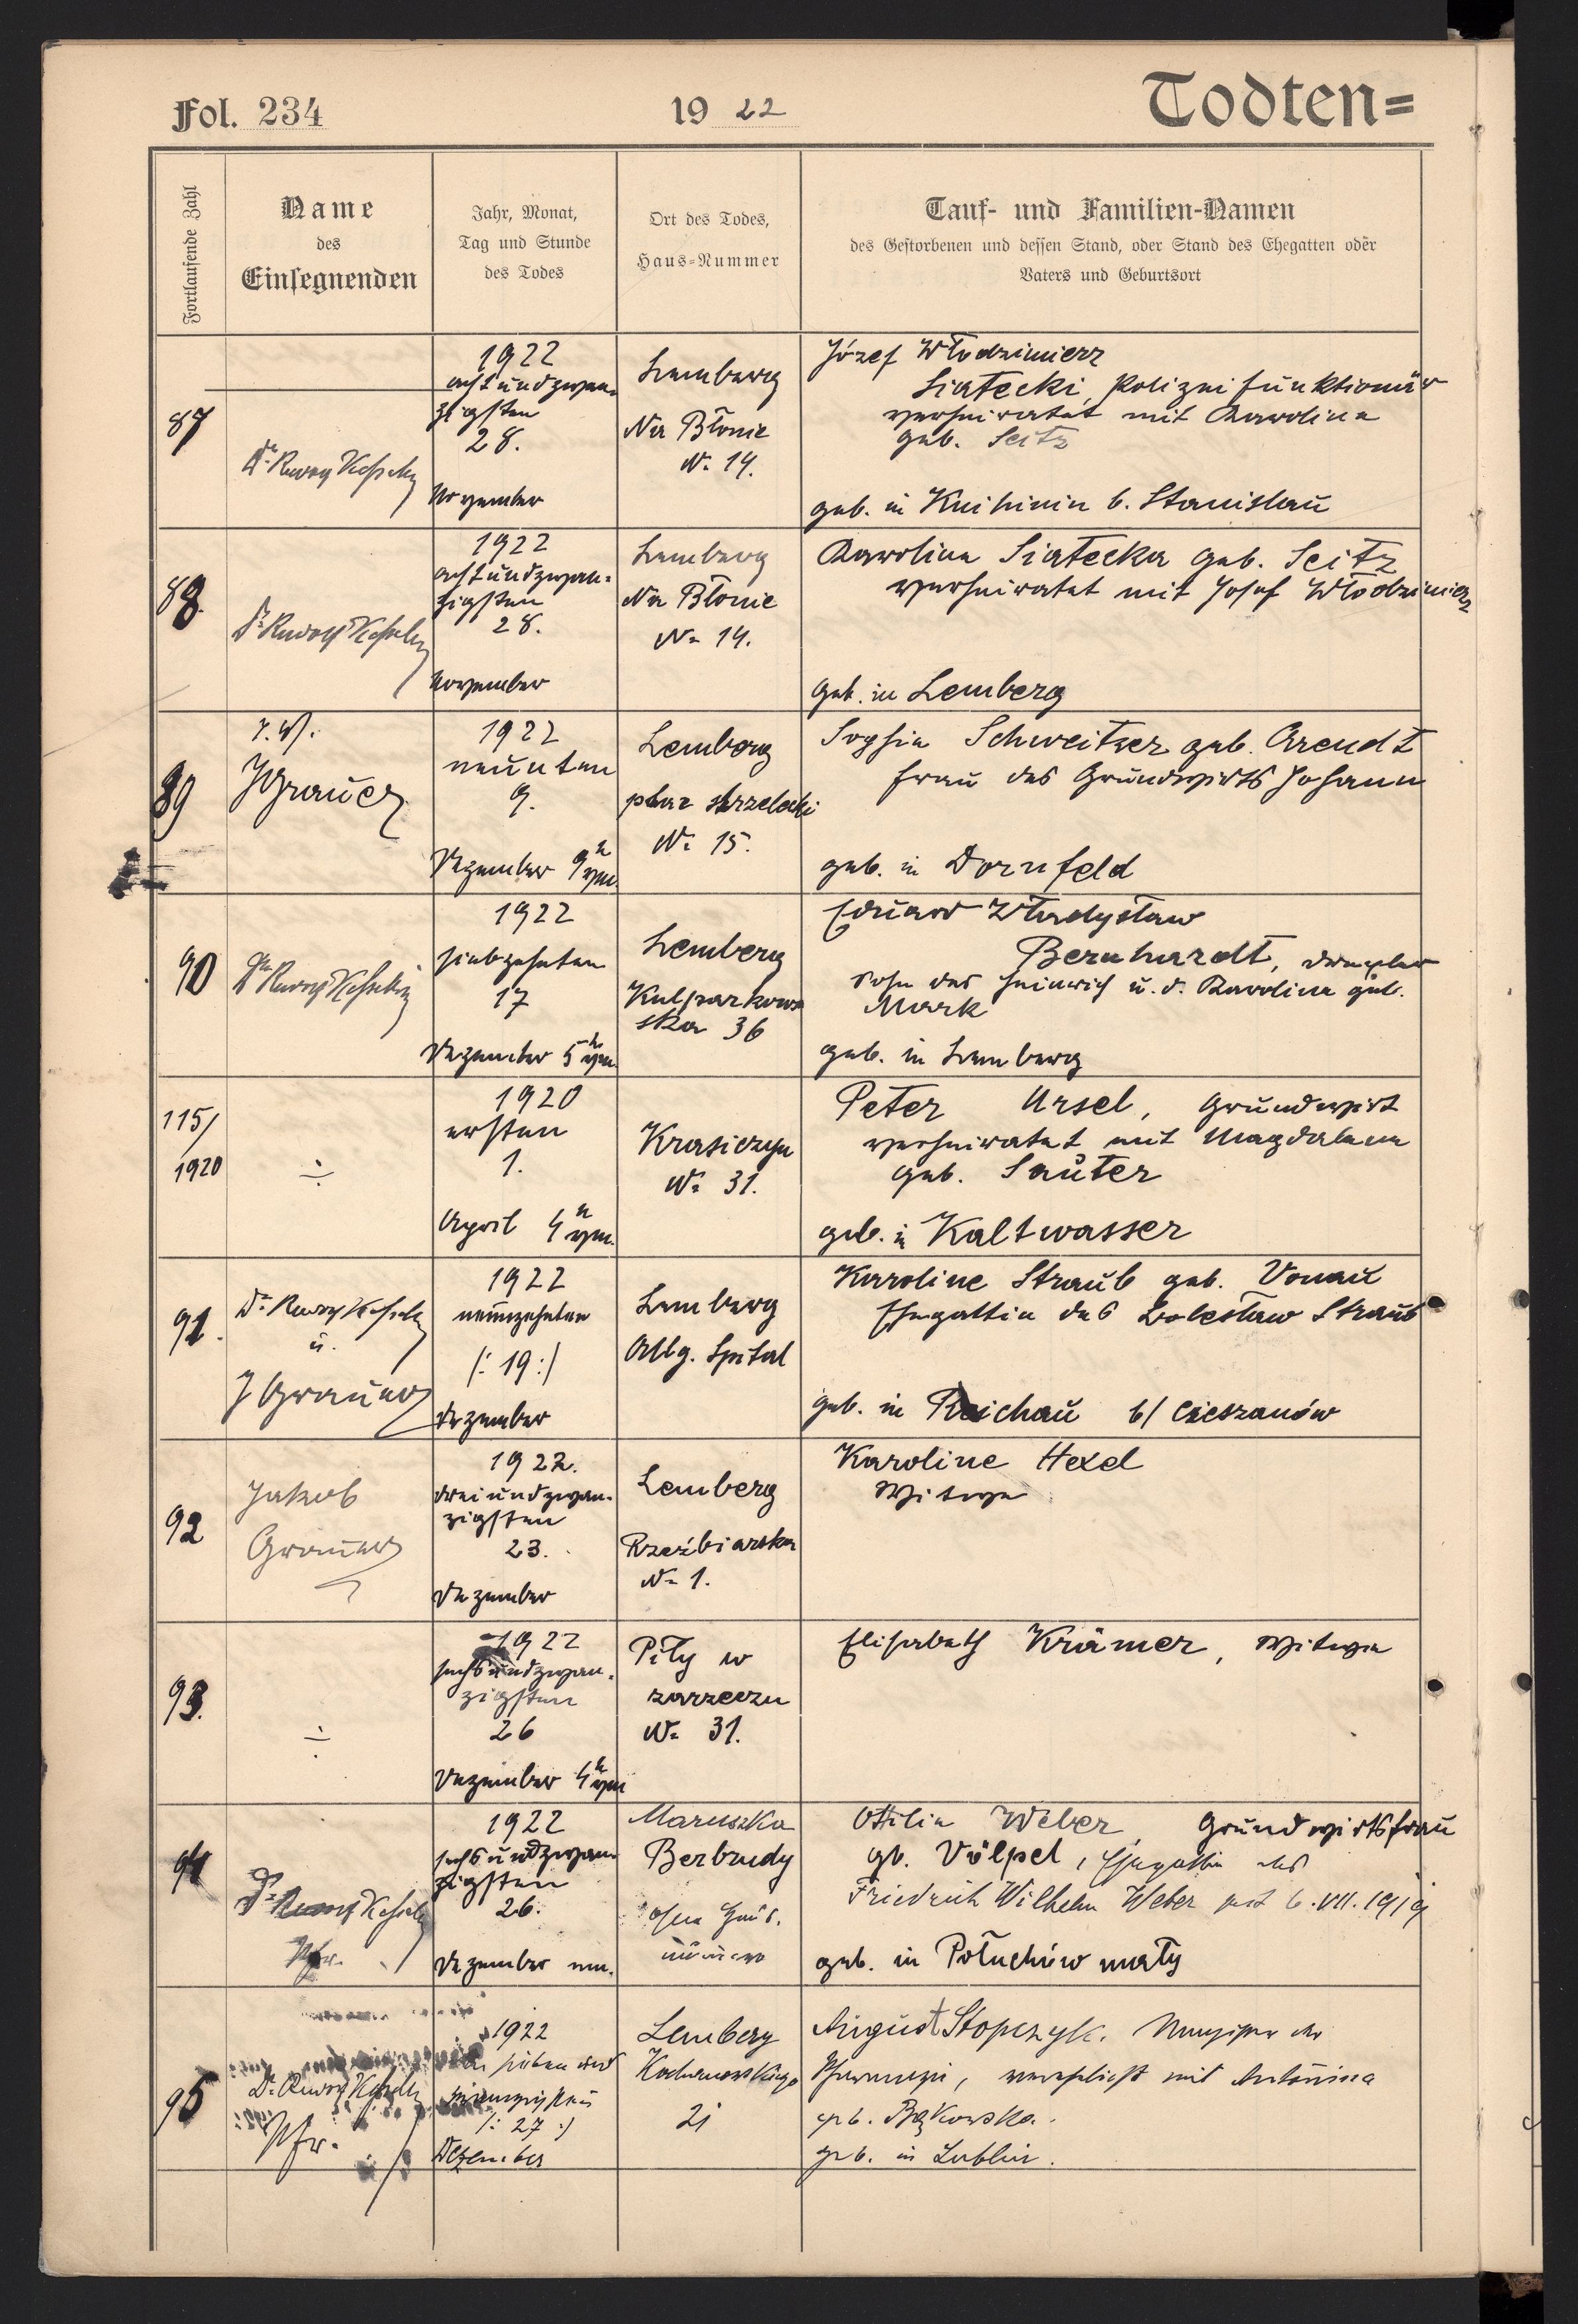 Fol. 234
1922
Todten=
Fortlaufende Zahl
Name
des
Einsegnenden
Jahr, Monat,
Tag und Stunde
des Todes
Ort des Todes,
Haus-Nummer
Tauf- und Familien-Namen
des Gestorbenen und dessen Stand, oder Stand des Ehegatten oder
Vaters und Geburtsort
87
Dr Rudolf Kesselring
1922
achtundzwan-
zigsten
28.
November
Lemberg
Na Błonie
No 14.
Józef Włodzimierz
Siatecki, Polizeifunktionär
verheiratet mit Karolina
geb. Seitz
geb. in Knihinin b. Stanislau
88.
Dr Rudolf Kesselring
1922
achtundzwan-
zigsten
28.
November
Lemberg
Na Błonie
No 14.
Karolina Siatecka geb. Seitz
verheiratet mit Josef Włodzimierz
geb. in Lemberg
89
i. V.
J Grauer
1922
neunten
9.
Dezember 9h vm.
Lemberg
plac strzelecki
No 15.
Sophia Schweitzer geb. Arendt
Frau des Grundwirts Johann
geb. in Dornfeld
90
Dr Rudolf Kesselring
1922
siebzehnten
17
Dezember 5h vm.
Lemberg
Kulparkow-
ska 36
Eduard Władysław
Bernhardt,
Sohn des Heinrich u. d. Karolina geb.
Mark
geb. in Lemberg
115/
1920
÷
1920
ersten
1.
April 4h vm.
Krasiczyn
No 31.
Peter Ursel, Grundwirt
verheiratet mit Magdalena
geb. Sauter
geb. in Kaltwasser
91.
Dr Rudolf Kesselring
u.
J Grauer
1922
neunzehnten
/: 19 :/
Dezember
Lemberg
Allg. Spital
Karoline Straub geb. Vonau
Ehegattin des Bolesław Straub
geb. in Reichau b/ Cieszanów
92
Jakob
Grauer
1922.
dreiundzwan-
zigsten
23.
Dezember
Lemberg
Rzeźbiarska
No 1.
Karoline Hexel
Witwe
93.
÷
1922
sechsundzwan-
zigsten
26
Dezember 4h vm
Piły w
zarzeczu
No 31.
Elisabeth Krämer, Witwe
94
Dr Rudolf Kesselring
Pfr.
1922
sechsundzwan-
zigsten
26.
Dezember nm.
Maruszka
Berbudy
ohne Haus-
nummer
Ottilie Weber, Grundwirtsfrau
gb. Völpel, Ehegattin des
Friedrich Wilhelm Weber seit 6. VII. 1919
geb. in Połuchów mały
95
Dr. Rudolf Kesselring
Pfr.
1922
sieben und
zwanzigsten
/: 27 :/
Dezember
Lemberg
Kochanowskiego
21
August Stopczyk, Magister der
Pharmazie, verehelicht mit Antonina
geb. Bąkowska.
geb. in Lublin.